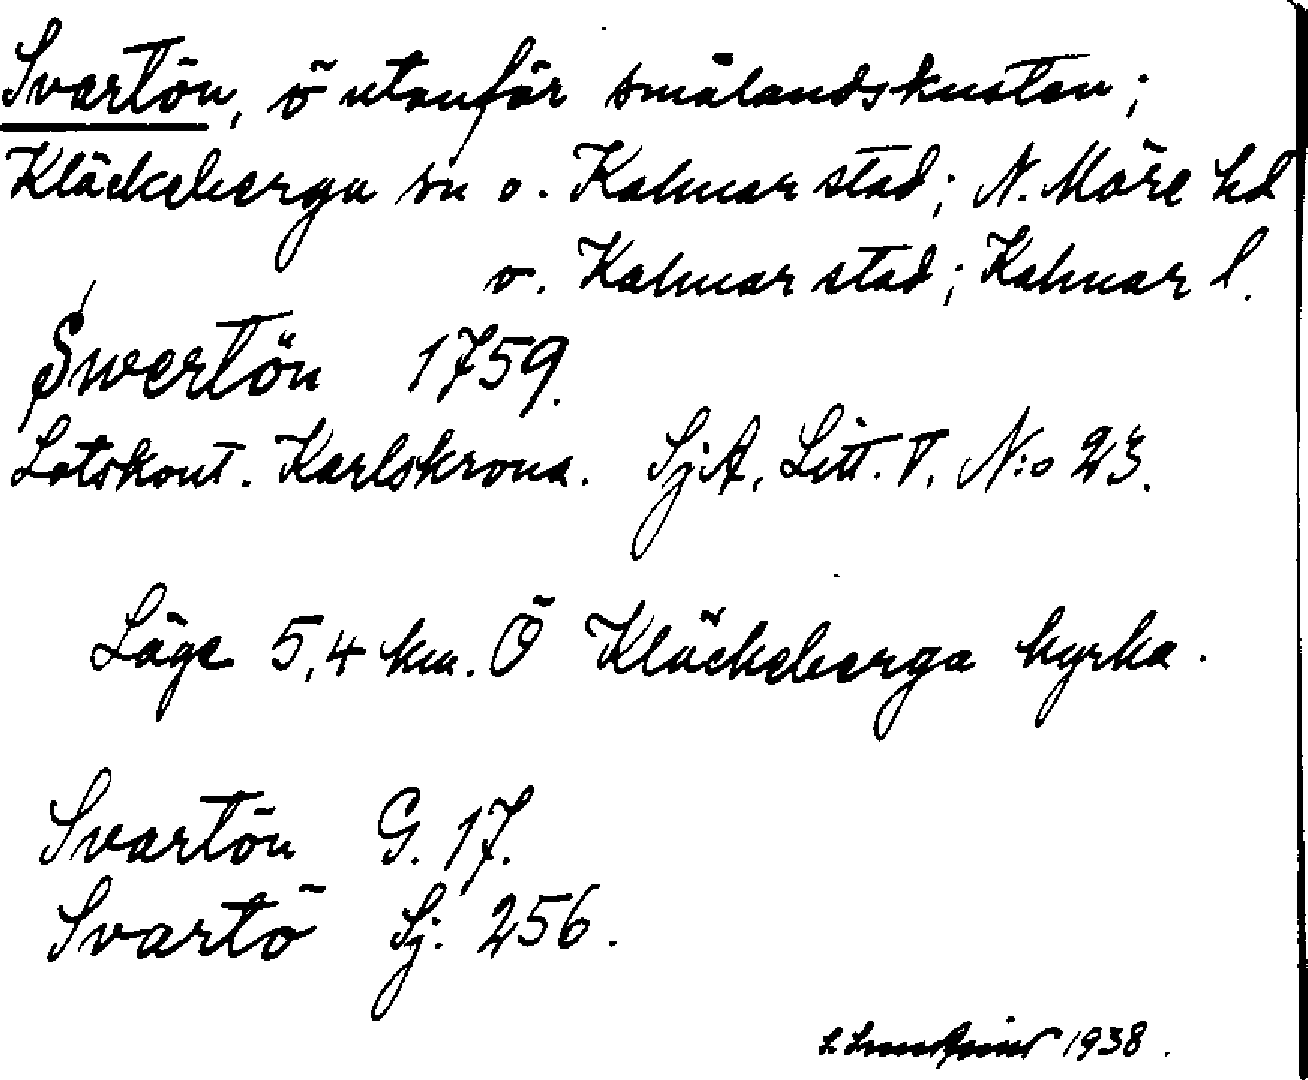 Svartön, ö utanför smålandskusten;
Kläckeberga sn o. Kalmar stad; N. Möre hd
o. Kalmar stad; Kalmar l.
Swertön 1759.
Lotskont. Karlskrona. SjA, Litt. V. N:o 23.
Läge 5,4 km. Ö Kläckeberga kyrka.
Svartön G. 17.
Svartö Sj. 256.
1938.